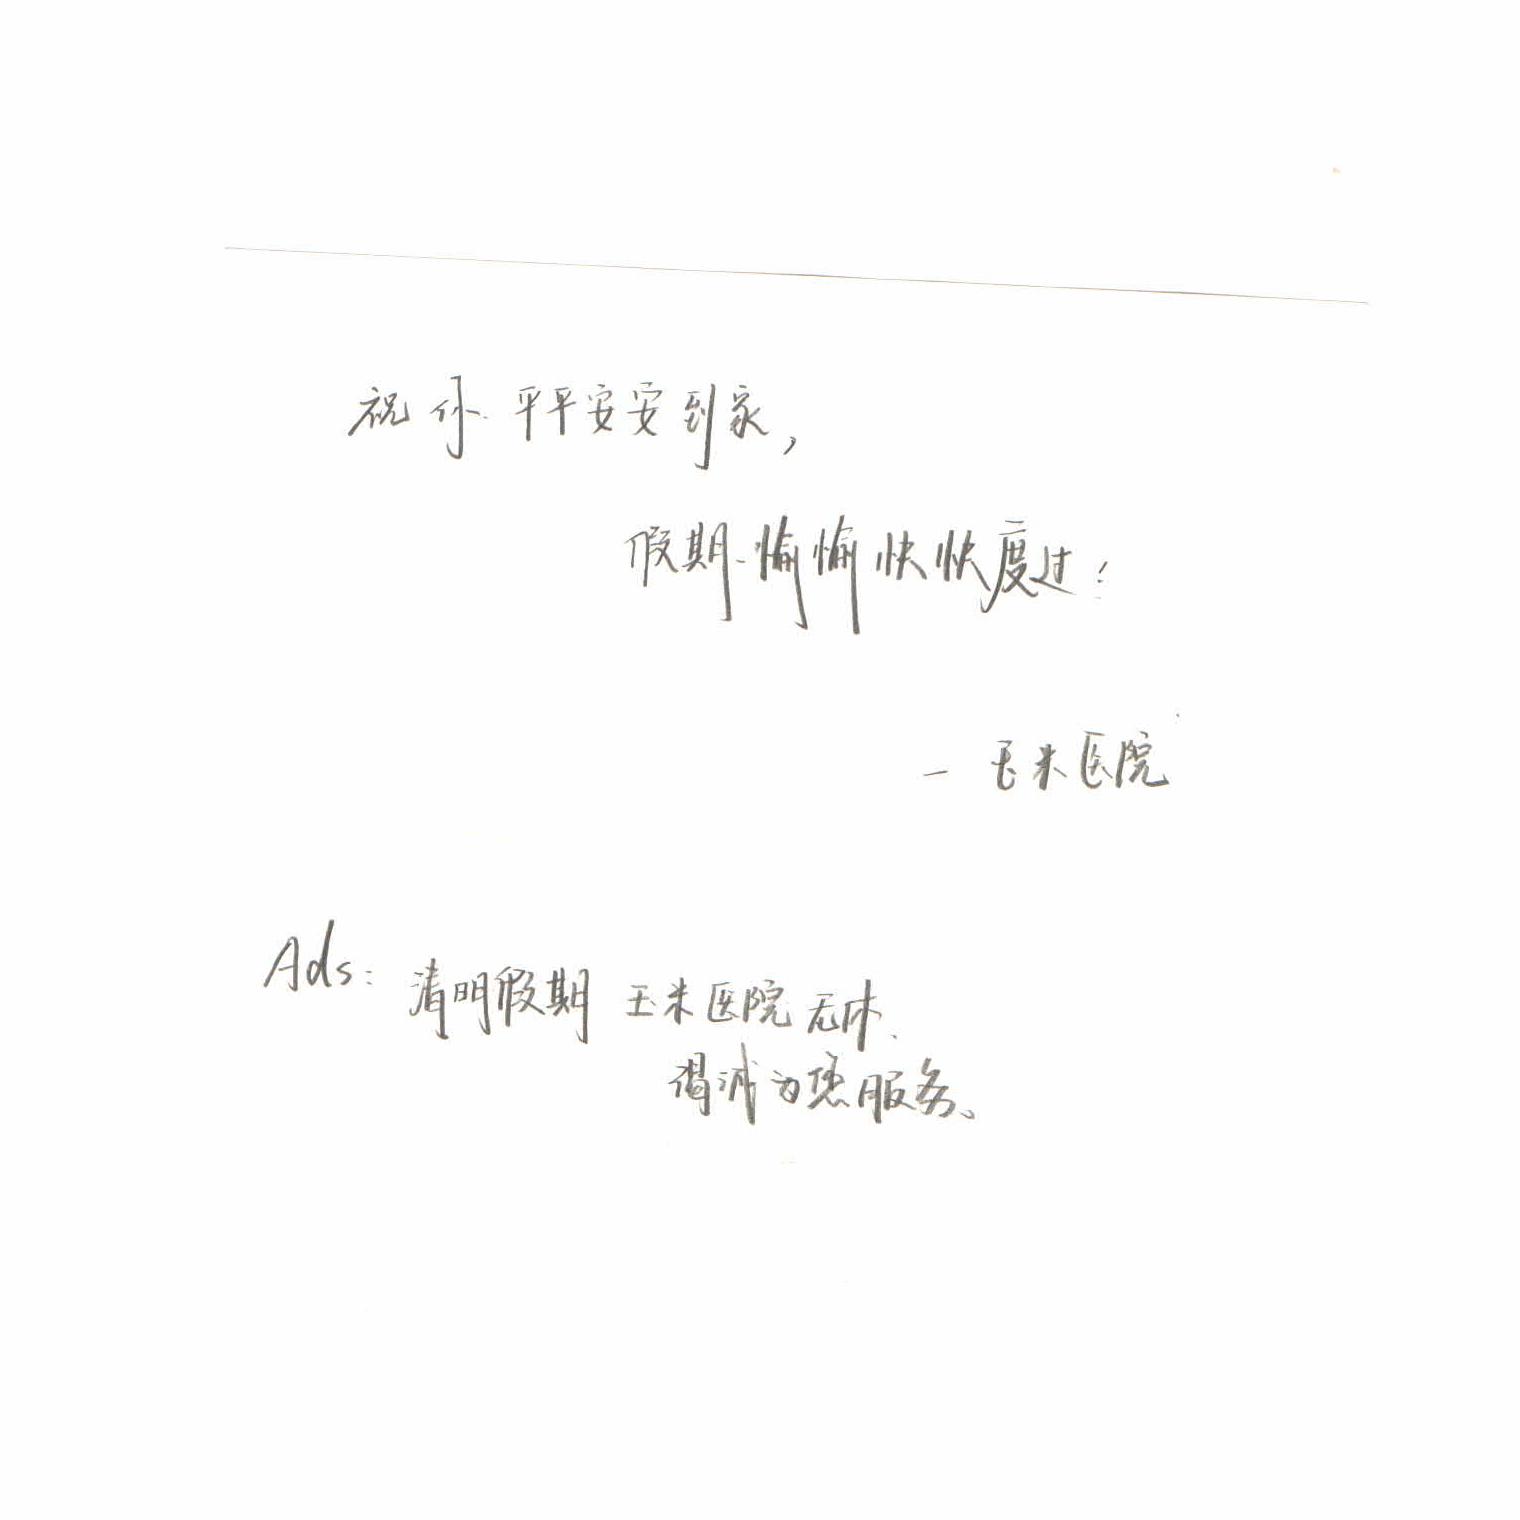 祝你平平安安到家,
假期愉愉快快度过!
- 玉米医院
Ads: 清明假期 玉米医院无休、
谒诚为您服务。